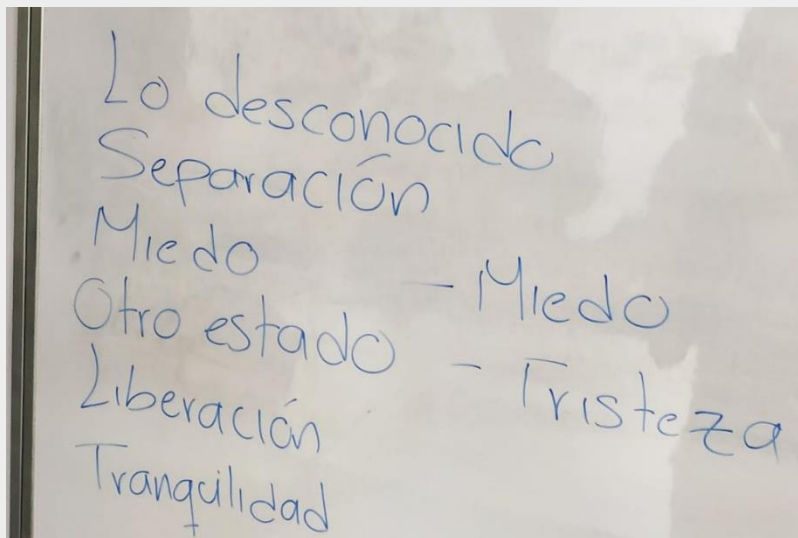 Lo desconocido
Separación
Miedo
Otro estado
Liberación
Tranquilidad
- Miedo
- Tristeza